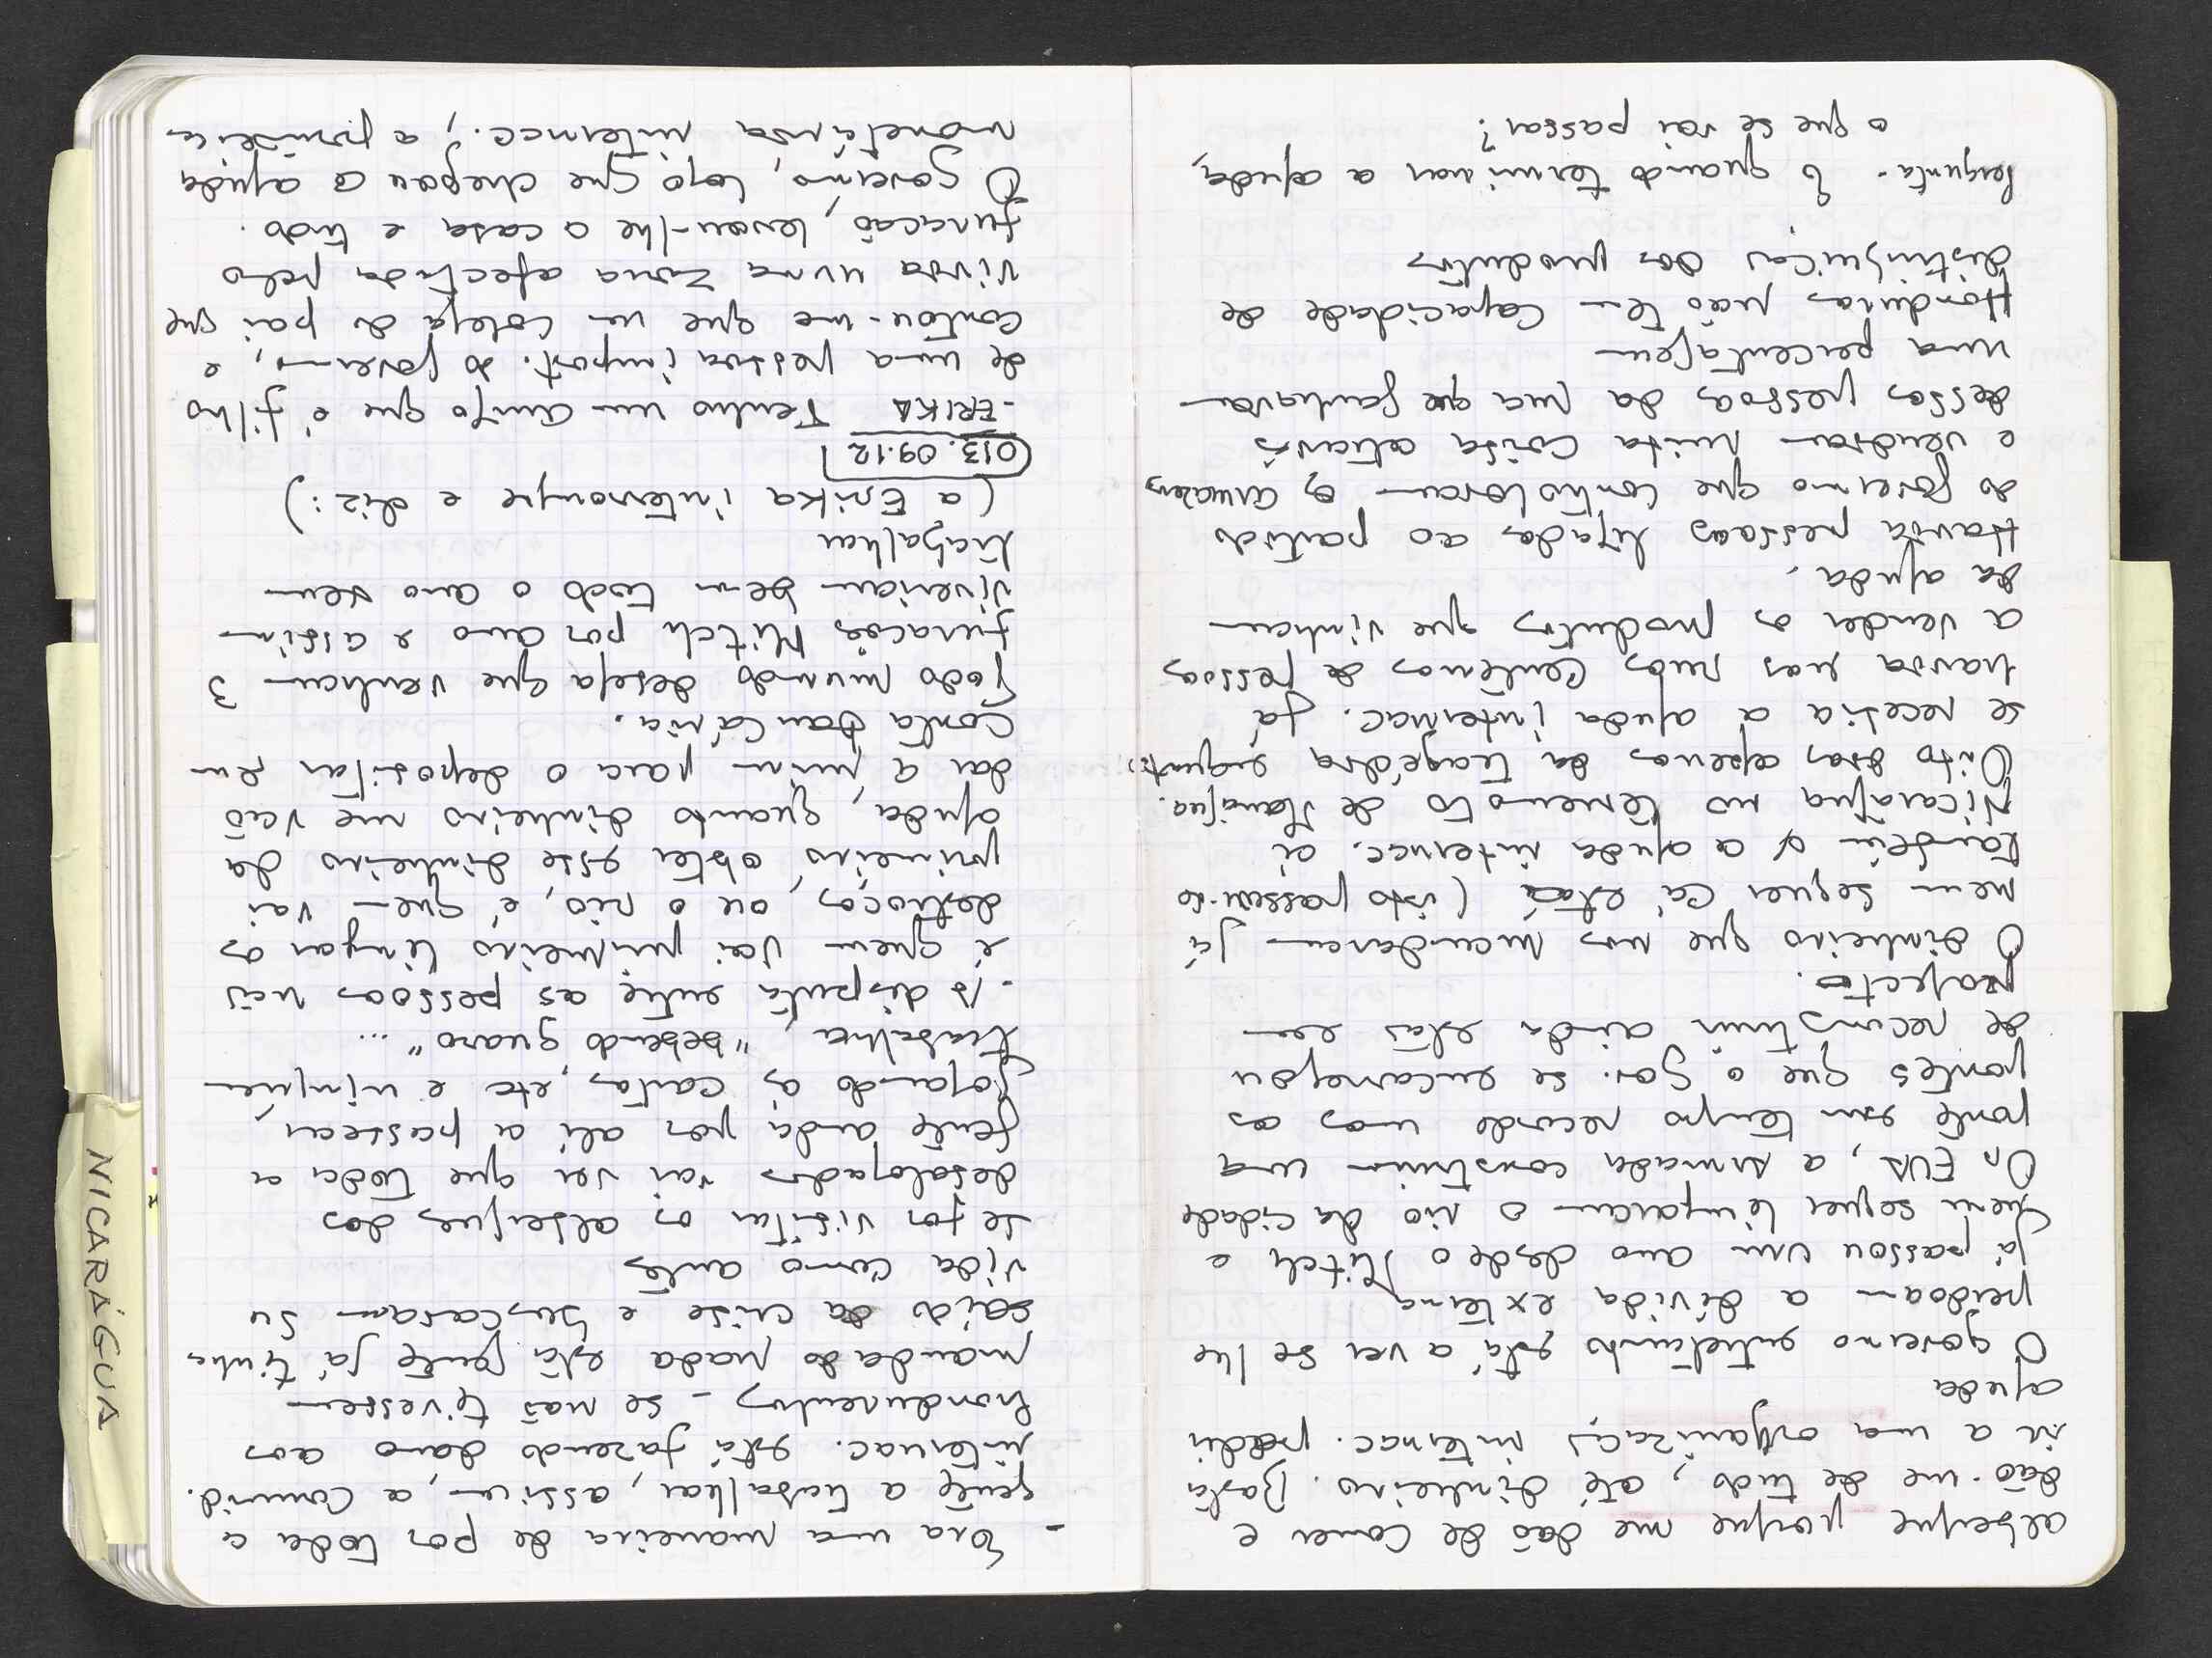 albergue porque me dão de comer e
dão-me de tudo, até dinheiro. Basta
ir a uma organizaç internac. pedir
ajuda
O governo entretanto está a ver se lhe
perdoam a dívida externa
já passou um ano desde o Mitch e
nem sequer limparam o rio da cidade
Os EUA, a Armada construiu uma
ponte em tempo recorde mas as
pontes que o Gov. se encarregou
de reconstruir ainda estão em
projecto.
O dinheiro que nos mandaram já
nem sequer cá está (isto passou-se
também c/ a ajuda internac. à
Nicarágua no terremoto de Manágua.
Oito dias apenas da tragédia seguinte),
se recebia a ajuda internac. já
havia nas ruas centenas de pessoas
a vender os produtos que vinham
da ajuda.
Havia pessoas ligadas ao partido
do governo que controlavam os armazens
e vendiam muita coisa através
dessas pessoas da rua que ganhavam
uma percentagem
Honduras não tem capacidade de
distribuição dos produtos
Pergunta - E quando terminar a ajuda,
o que se vai passar?
- Era uma maneira de por toda a
gente a trabalhar, assim, a Comunid.
internac. está fazendo dano aos
hondurenhos - se não tivessem
mandado nada esta gente já tinha
saído da crise e buscavam su
vida como antes
Se for visitar os albergues dos
desalojados vai ver que toda a
gente anda por ali a passear,
jogando às cartas, etc e ninguém
trabalha, "bebendo guaro" ...
- A disputa entre as pessoas não
é quem vai primeiro limpar os
destroços, ou o rio, é quem vai
primeiro, obter esse dinheiro da
ajuda, quanto dinheiro me vão
dar a mim para o depositar em
conta bancária.
Todo mundo deseja que venham 3
furacões Mitch por ano e assim
viveriam bem todo o ano sem
trabalhar
(a Erika interrompe e diz:)
013.09.12
- ERIKA Tenho um amigo que é filho
de uma pessoa import. do governo, e
contou-me que um colega do pai que
vivia numa zona afectada pelo
furacão, levou-lhe a casa e tudo.
O Governo, logo que chegou a ajuda
monetária internac., a primeira
NICARÁGUA